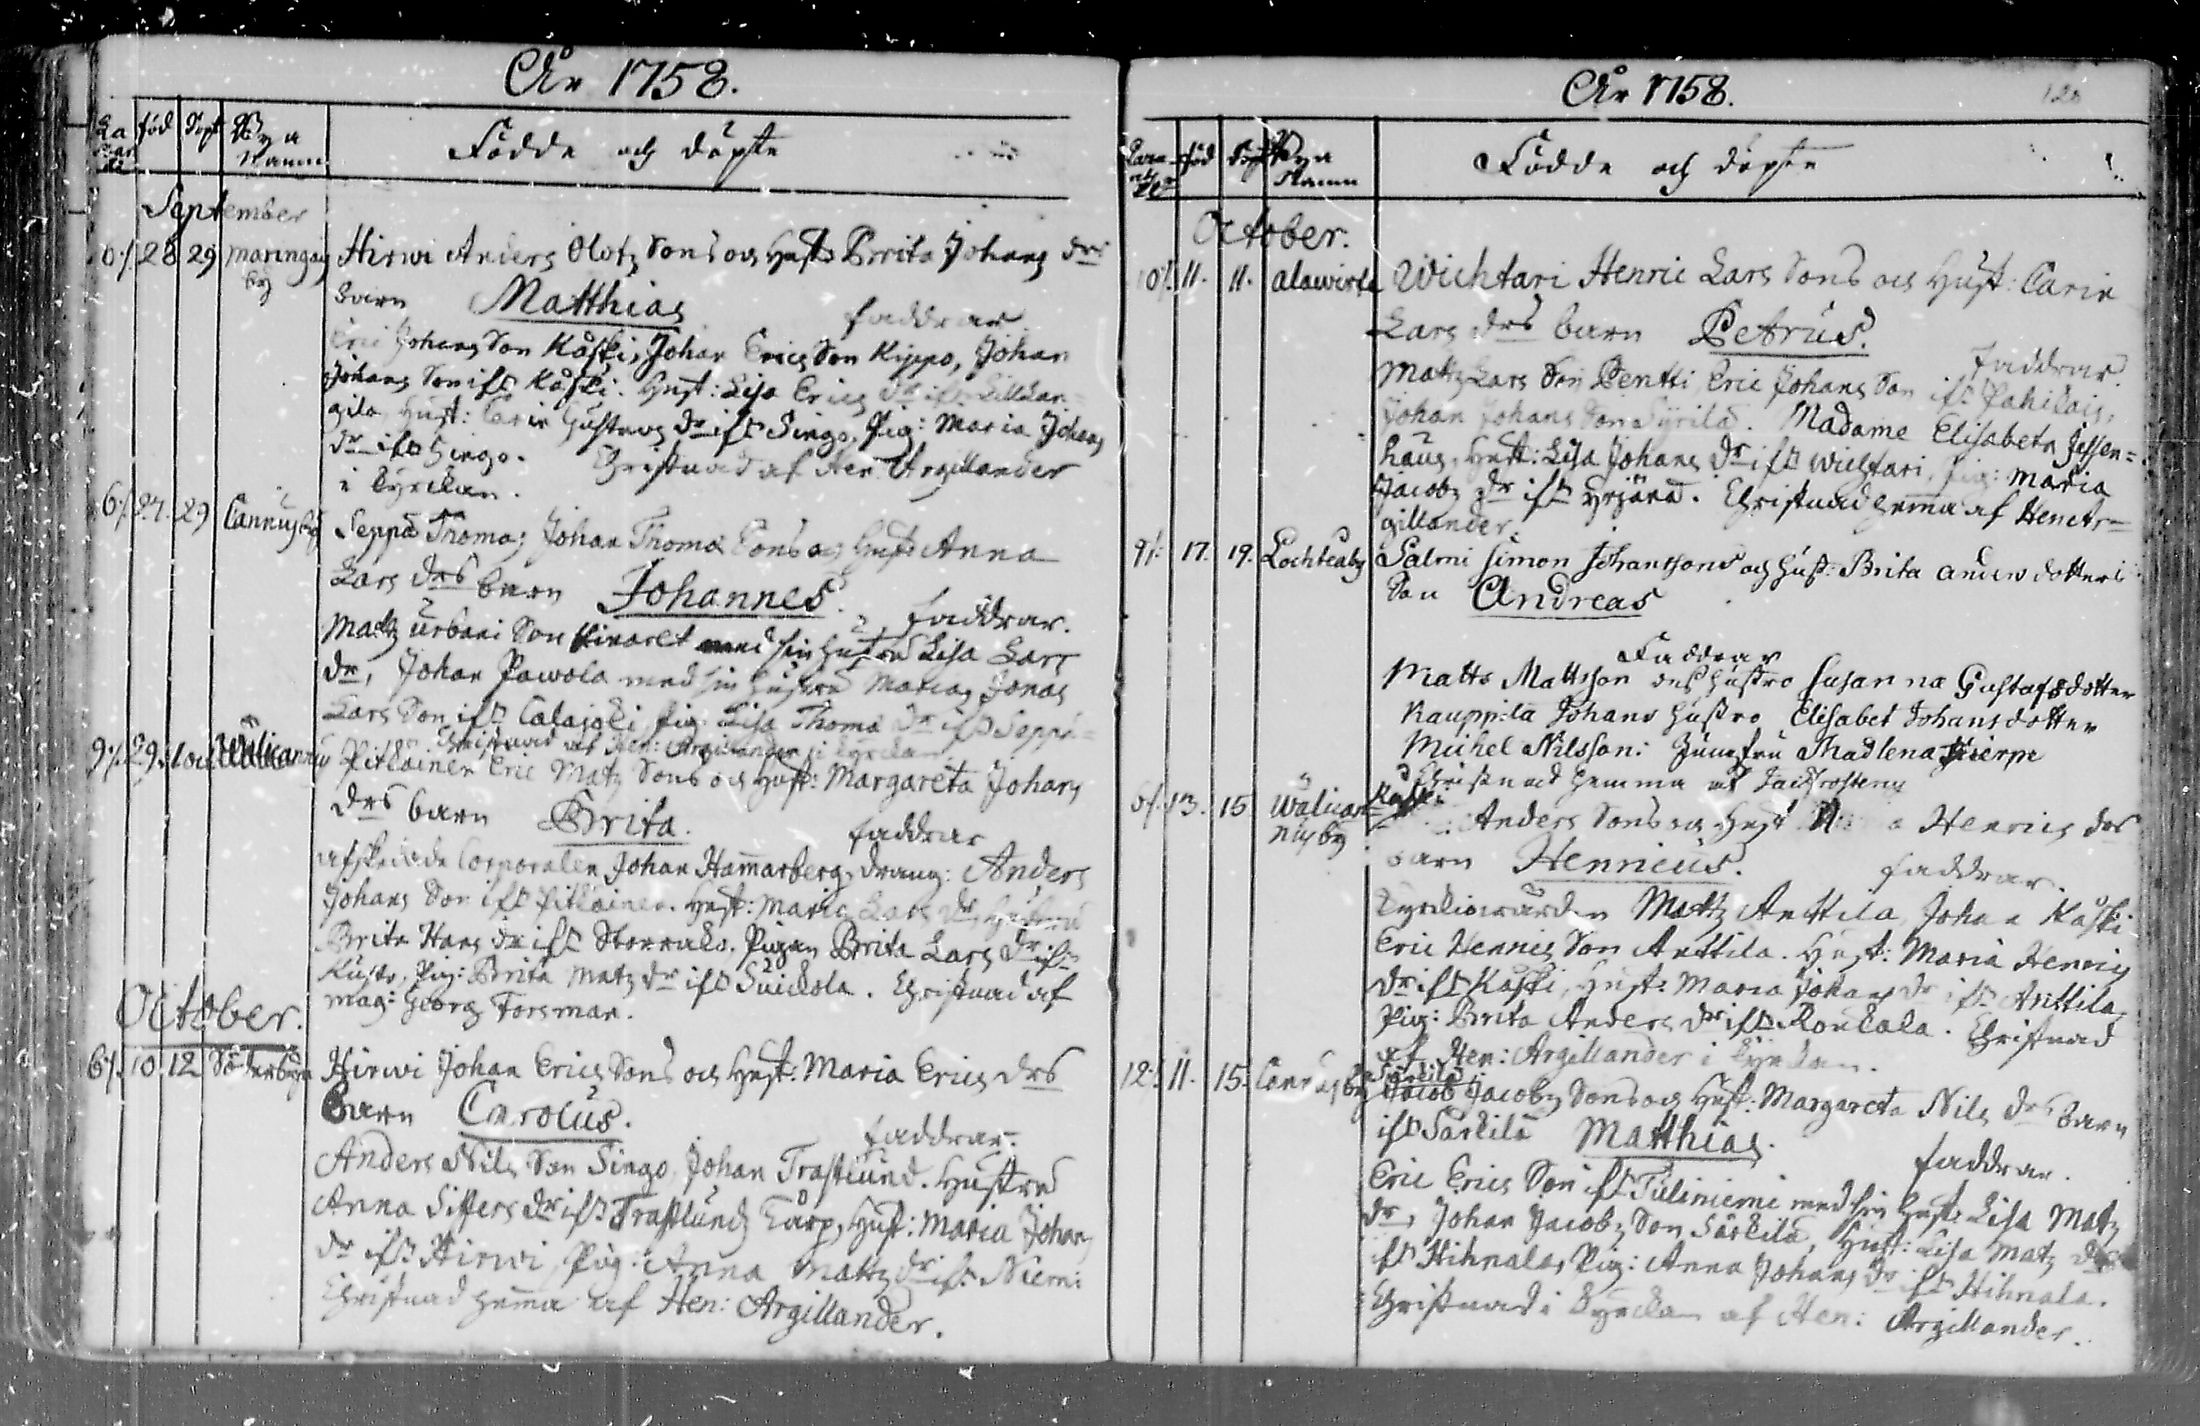 År 1758.
född Döpt Byn Namn Födde och döpte
September
6/. 28 29 Maringais by Hirwi Anders Olotz Sons och Hust: Brita Johans drs
barn Matthias faddrar
Eric Johans Son Kåski, Johan Erics Son Kippo, Johan
Johans Son ifr Kåski. Hust: Lisa Erics Dr ifr
Hust: Carin Gustavs dr ifr Singo, Pig: Maria Johans
dr ifr Singo. Christnad af Her: Argillander
i Kyrckan.
6/. 27. 29 Cannusby Seppä Thomas Johan Thomæ Sons och Hust: Anna
Lars drs barn Johannes. faddrar.
Matz Urbani Son med sin Hustru Lisa Lars
dr, Johan Pawola med sin Hustru Maria, Jonas
Lars Son ifr Calajoki, Pig: Lisa Thomæ Dr ifr Seppä
Christnad af Her: Argillander i Kyrckan
9/. 29. 1 oct Wälicannus Pitkäinen Eric Matz Sons och Hust: Margareta Johans
drs barn Brita. faddrar
afskedade Corporalen Johan Hammarberg, Dräng: Anders
Johans Son ifr Pitkäinen. Hust: Maria Lars dr, Hustru
Brita Hans dr ifr Storrako. Pigan Brita Lars dr ifr
Pig: Brita Matz dr ifr Suickola. Christnad af
Mag: Georg Forsman.
October.
6/. 10 12 Söderbyn Hirwi Johan Erics Sons och Hust: Maria Erics drs
barn Carolus.
faddrar.
Anders Nils Son Singo, Johan Trastlund. Hustru
Anna Siffers dr ifr Trastlund, Hust: Maria Johans
dr ifr Hirwi, Pig: Anna Mattz dr ifr Niemi
Christnad hemma af Her: Argillander.
År 1758. 120
född Döpt Byn Namn Födde och döpte
October.
10/. 11. 11. Alawirte Wichtari Henric Lars Sons och Hust: Carin
Lars drs barn Petrus.
faddrar.
Matz Lars Son Pentti, Eric Johans Son ifr
Johan Johans Son Syrilä. Madame Elisabeta Jessen=
haus, Hust: Lisa Johans dr ifr Wichtari, Pig: Maria
Jacobz dr ifr Yrjänä. Christnad hemma af Her: Ar=
gillander.
9/. 17. 19. Lochteaby Salmi Simon Johanssons och Hust: Brita Anders dotters
Son Andreas
Faddrar
Matts Mattsson des hustro Susanna Gustafsdotter
Kauppila Johans hustro Elisabet Johansdotter
Michel Nilsson: Jungfru Madlena Hierpe
Christnad hemma af
6/. 13. 15 Wälican nusby Kåski Anders Sons och Hust: Henrics drs
barn Henricus. faddrar.
Kyrckiowärden Mattz Anttila, Johan Kåski
Eric Henrics Son Anttila. Hust: Maria Henrics
dr ifr Kåski, Hust: Maria Johans dr ifr Anttila,
Pig: Brita Anders dr ifr Roukala. Christnad
af Her: Argillander i Kyrckan.
12/. 11. 15. Cannusby Särkilä Jacob Jacobz Sons och Hust: Margareta Nils drs barn
ifr Särkilä Matthias. faddrar.
Eric Erics Son ifr Tuliniemi med sin Hust: Lisa Matz
dr, Johan Jacobz Son Särkilä, Hust: Lisa Matz dr
ifr Hihnala, Pig: Anna Johans dr ifr Hihnala.
Christnad i Kyrckan af Her: Argillander.